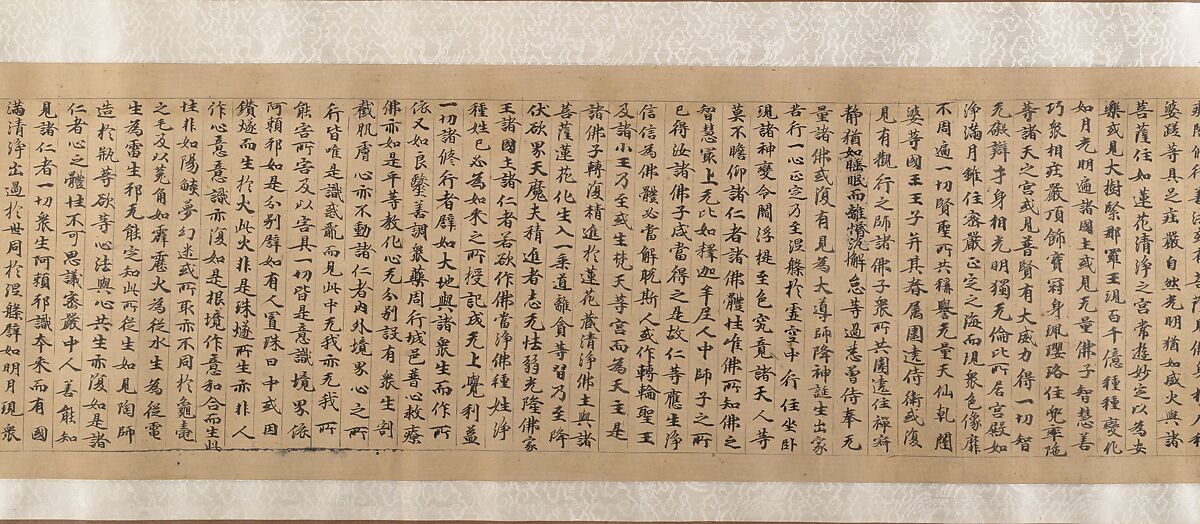 婆瑳等具足在嚴自然光明猶如盛火與諸
菩薩住如蓮花清淨之宮常遊妙定以為安
樂或見大樹緊那羅王現百千億種種變化
如月光明遍諸國土或見无量佛子智慧善
巧眾相莊嚴頂飾寶冠身珮瓔珞住兜率陁
等諸天之宮或見普賢有大威力得一切智
无礙辯才身相光明獨无倫比所居宮殿如
淨滿月雖住密嚴正定之海而現眾色像靡
不周遍一切賢聖所共稱譽无量天仙乾闥
婆等國王王子并其眷屬圍遶侍衛或復
見有觀行之師諸佛子眾所共圍遶住禪寂
靜猶如睡眠而離惛沉懈怠等過悉曾侍奉无
量諸佛或復有見為大導師降神誕生出家
苦行一心正定乃至涅槃於虛空中行住坐卧
現諸神變令閻浮提至色究竟諸天人等
莫不瞻仰諸仁者諸佛體性唯佛所知佛之
智慧最上无比如釋迦牟尼人中師子之所
已得汝諸佛子咸當得之是故仁等應生淨
信信為佛體必當解脫斯人或作轉輪聖王
及諸小王乃至或生梵天等宮而為天王是
諸佛子轉復精進於蓮花藏清淨佛土與諸
菩薩蓮花化生入一乘道離貪等習乃至降
伏欲界天魔夫精進者志无怯弱光隆佛家
王諸國土諸仁者若欲作佛當淨佛種姓淨
種姓已必為如來之所授記成无上覺利益
一切諸修行者譬如大地與諸眾生而作所
依又如良毉善調眾藥周行城邑普心救療
佛亦如是平等教化心无分別設有眾生割
截肌膚心亦不動諸仁者內外境界心之所
行皆唯是識惑亂而見此中无我亦无我所
能害所害及以害具一切皆是意識境界依
阿賴耶如是分別譬如有人置珠日中或因
鑽燧而生於火此火非是珠燧所生亦非人
作心意意識亦復如是根境作意和合而生此
性非如陽𦦨夢幻迷或所取亦不同於龜毒
之毛及以菟角如霹靂火為從水生為從電
生為雷生耶无能定知此所從生如見陶師
造於瓶等欲等心法與心共生亦復如是諸
仁者心之體性不可思議密嚴中人善能知
見諸仁者一切眾生阿賴耶識本來而有圓
滿清淨出過於世同於涅槃譬如明月現眾